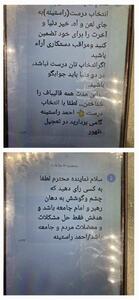 انتخاب درست(راستینه)به
جای لعن و آه، خیر دنیا و
آخرت را برای خود تضمین
کنید ومراقب دستکاری آراء
باشید.
اگرانتخاب تان درست نباشد،
در دو دنیا باید جوابگو
باشید.
همه قالیباف را
لطفا با انتخاب
درست احمد راستینه
گامی بردارید در تعجیل
ظهور
سلام نماینده محترم لطفا
به کسی رای دهید که
چشم وگوشش به دهان
رهبر و امام جامعه باشد و
هدفش فقط حل مشکلات
و معضلات مردم و جامعه
باشد/احمد راستینه